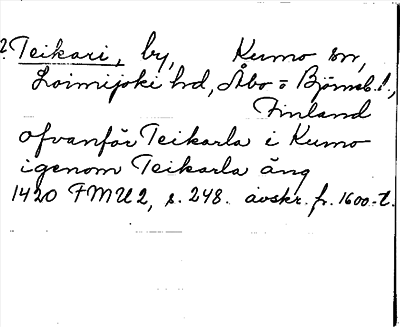 ? Teikari, by, Kumo sn,
Loimijoki hd, Åbo o Björneb. l.,
Finland
ofvanför Teikarla i Kumo
igenom Teikarla äng
1420 FMU 2, s. 248. avskr. fr. 1600-t.